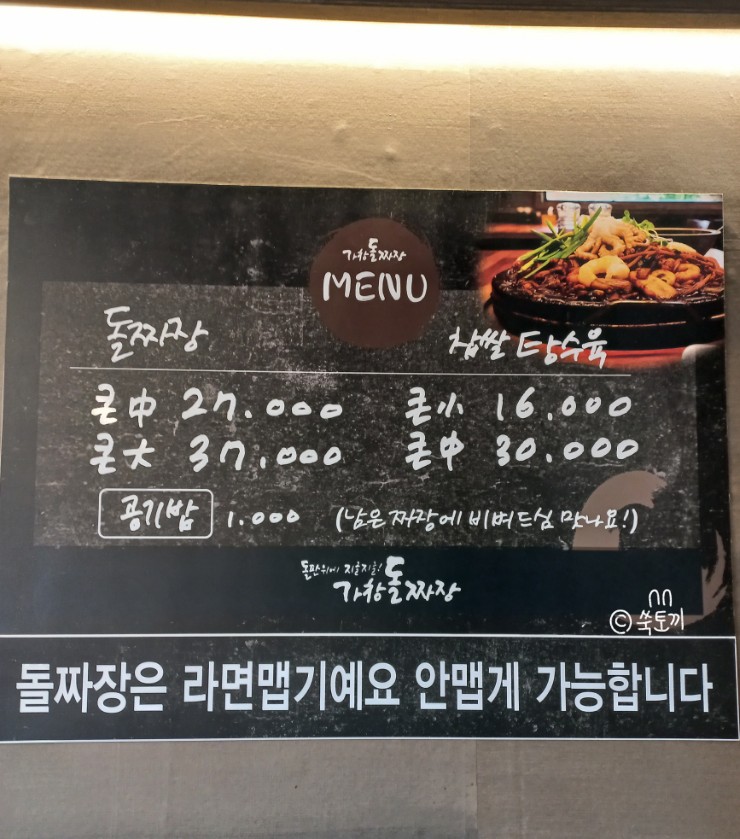 가창돌짜장
MENU
돌짜장 찹쌀 탕수육
큰中 27.000 큰小 16.000
큰大 37.000 큰中 30.000
공기밥 1.000 (남은 짜장에 비벼드심 맛나요!)
돌판위에 지글지글!
가창돌짜장
© 쑥토끼
돌짜장은 라면맵기예요 안맵게 가능합니다